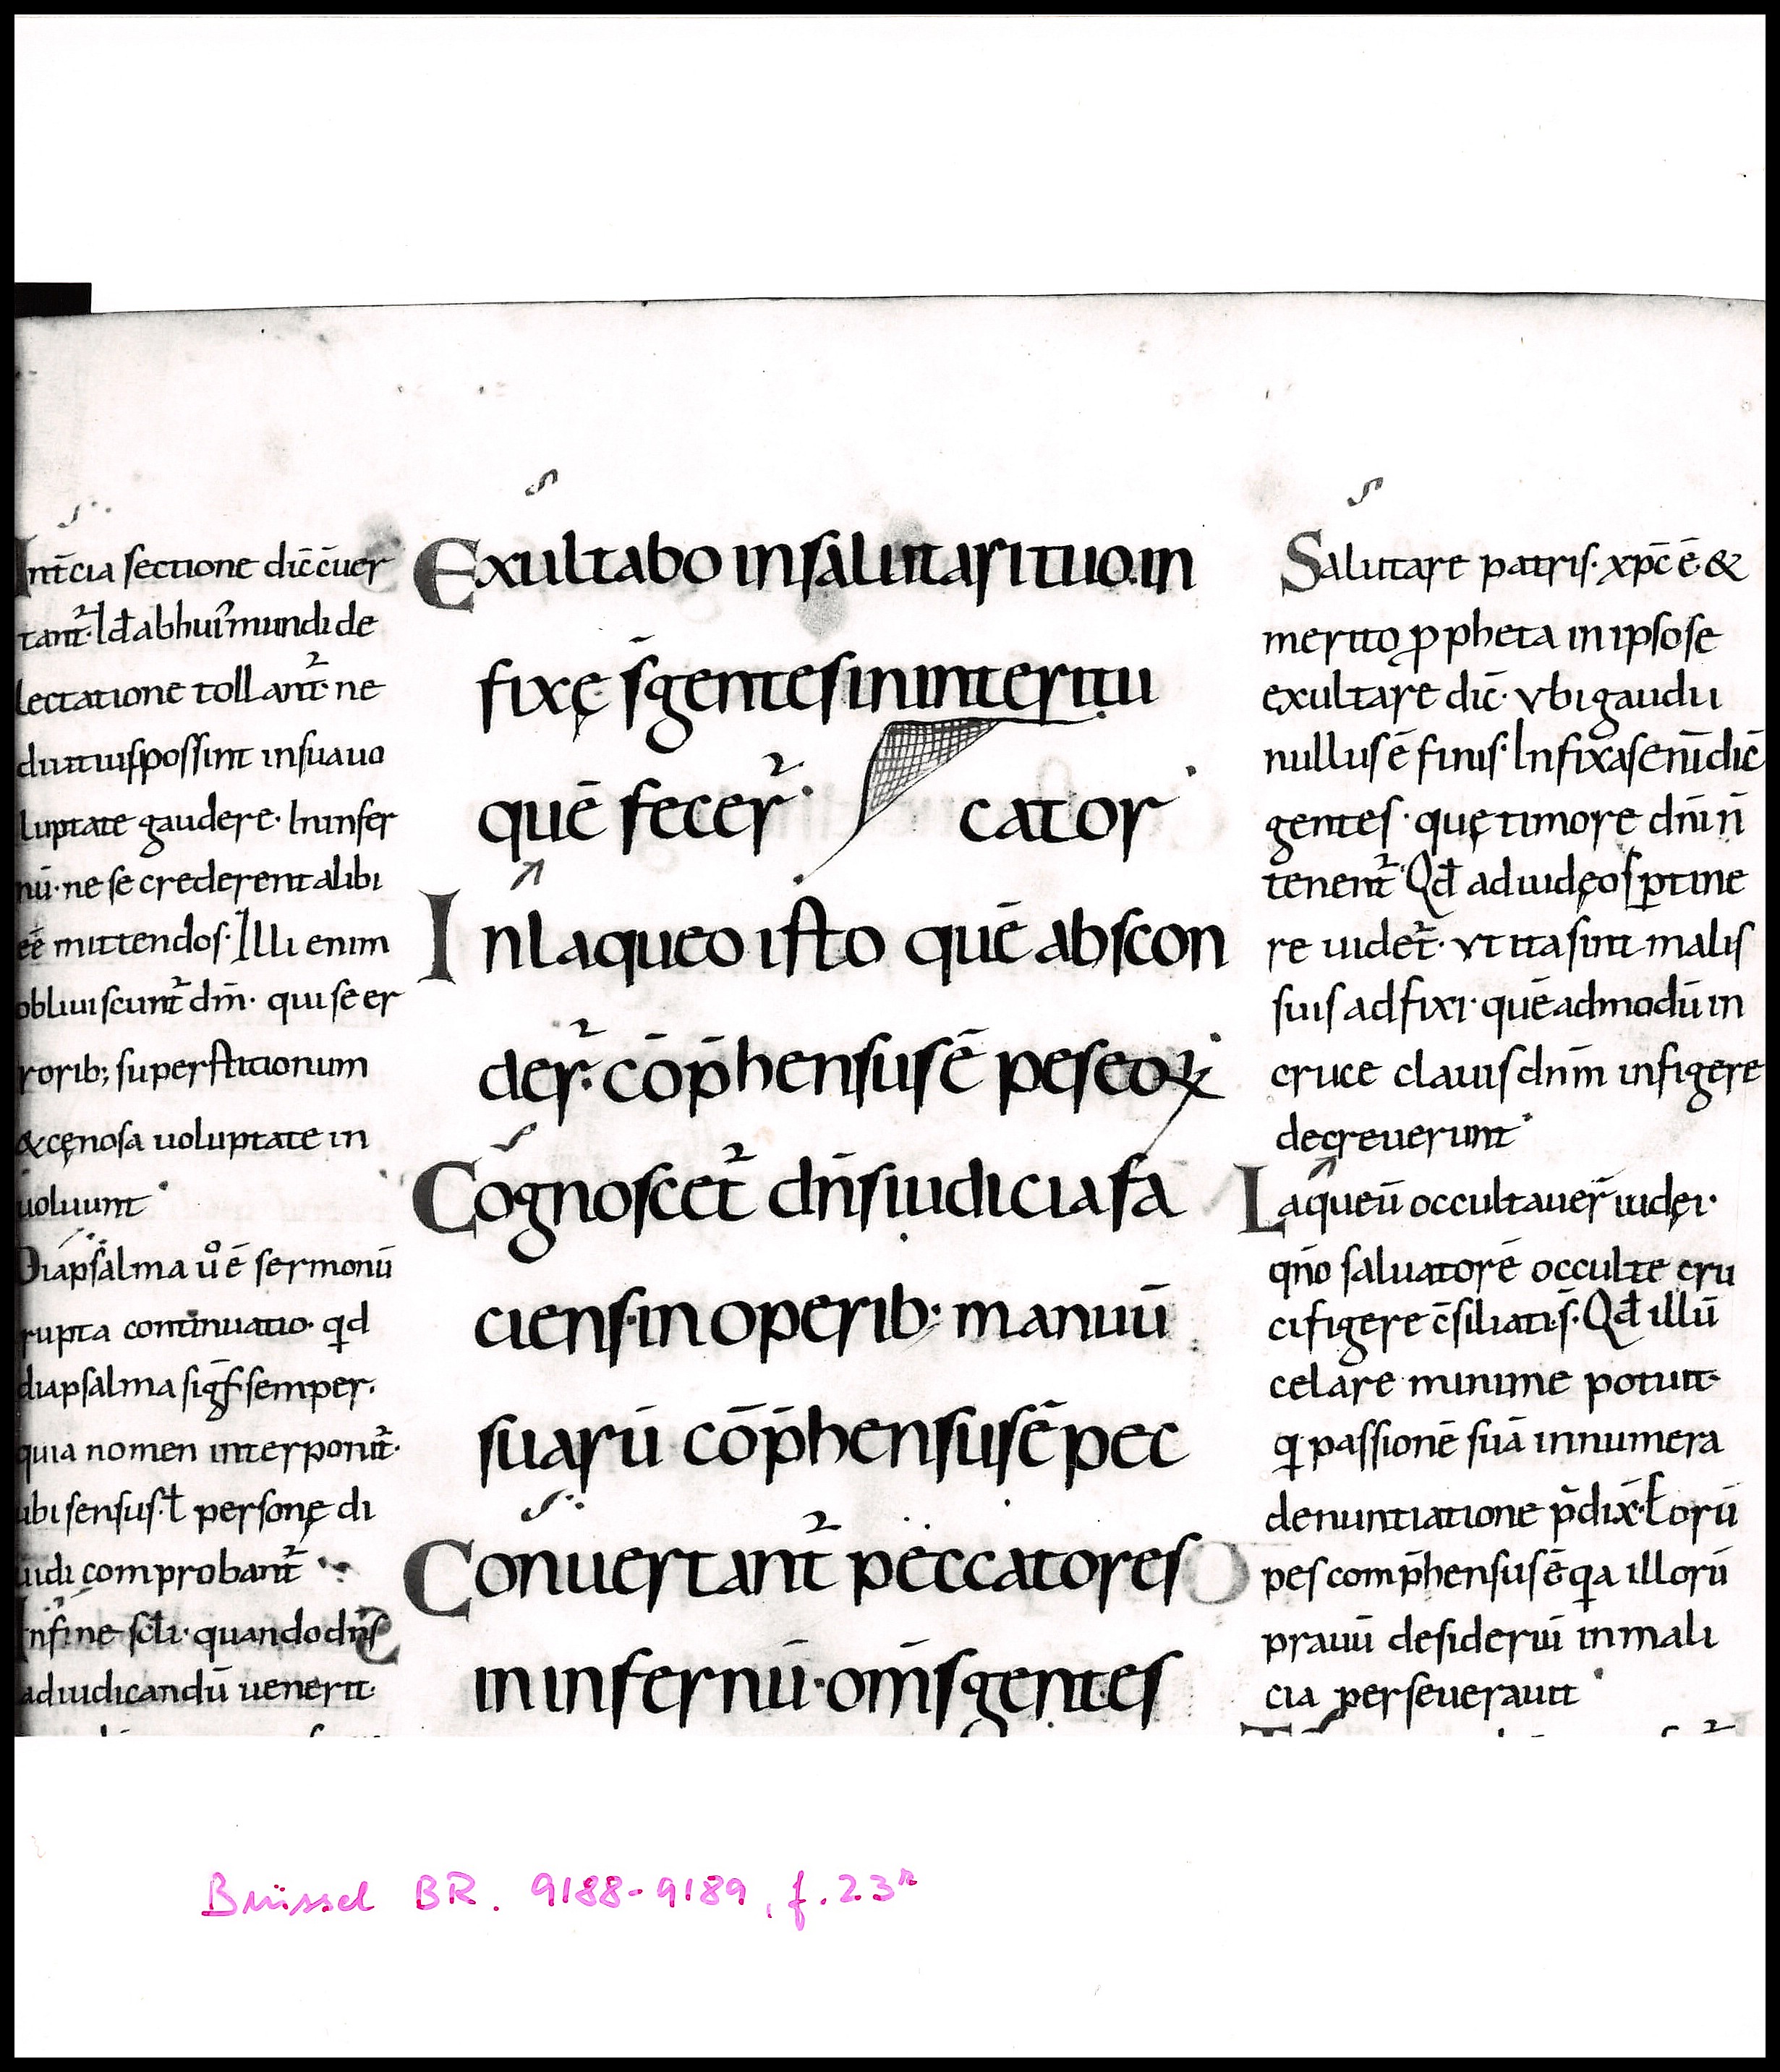 Int̄cia sectione dic̄ c̄uer
tant᷑· ld̄ ab hui᷑ mundi de
lectatione tollant᷑· ne
diutius possint in sua uo
luptate gaudere· In infer
nū· ne se crederent alibi
eē mittendos· Illi enim
obliuiscunt᷑ dm̄· qui se er
rorib; superstitionum
& cęnosa uoluptate in
uoluunt·
Diapsalma ů ē sermonū
rupta continuatio· qd
diapsalma sigf̄ semper·
quia nomen interponit᷑·
ubi sensus· ł personę di
uidi comprobant᷑
In fine scl̄i· quando dn̄s
ad iudicandū uenerit·
Exultabo in salutari tuo· in
fixę s̄ gentes in interitu
quē fecer᷑· cator
In laqueo isto quē abscon
der᷑· cōp̄hensus ē pes eoꝝ
Cognoscet᷑ dn̄s iudicia fa
ciens· in operib; manuū
suarū cōp̄hensus ē pec
Conuertant᷑ peccatores
in infernū· om̄s gentes
Salutare patris· xpc̄ ē· &
merito ꝓpheta in ipso se
exultare dic̄· vbi gaudii
nullus ē finis· Infixas enī dic̄
gentes· quę timore dn̄i n̄
tenent᷑· Qd̄ ad iudęos ꝑtine
re uidet᷑· vt ita sint malis
suis adfixi· quēadmodū in
cruce clauis dnm̄ infigere
decreuerunt·
Laqueū occultauer̄ iudęi·
qn̄o saluatorē occulte cru
cifigere c̄siliati s̄· Qd̄ illū
celare minime potuit·
q̣ passionē suā innumera
denuntiatione p̄dix̄· Eorū
pes comp̄hensus ē qa illorū
prauū desideriū in mali
cia perseuerauit·
Brüssel BR. 9188-9189, f. 23ʳ